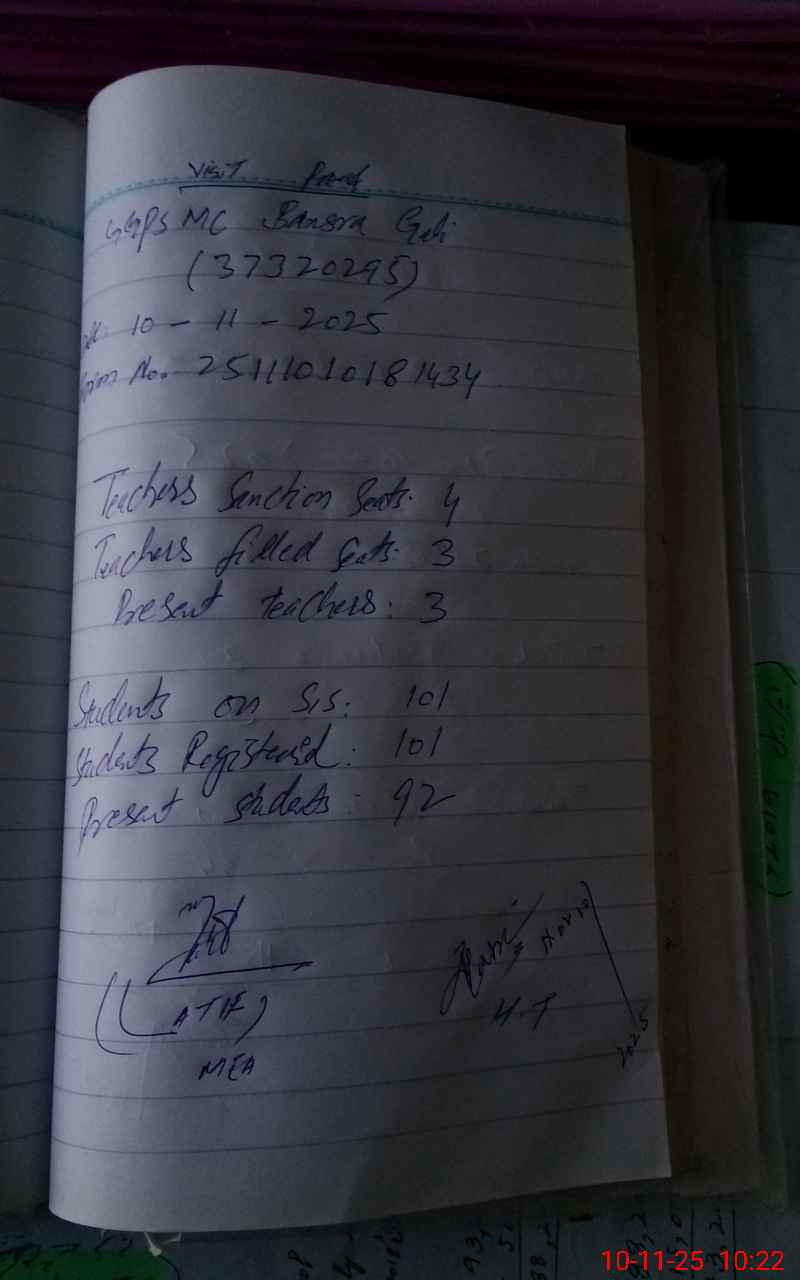 Visit Proof
GGPS MC Bansra Gali
(37320295)
10 - 11 - 2025
No. 25111010181434
Teachers Sanction Seats. 4
Teachers filled Seats. 3
Present teachers: 3
Students on SIS: 101
Students Registered: 101
Present students: 92
(ATIF)
MEA
H.T
2025
10-11-25 10:22